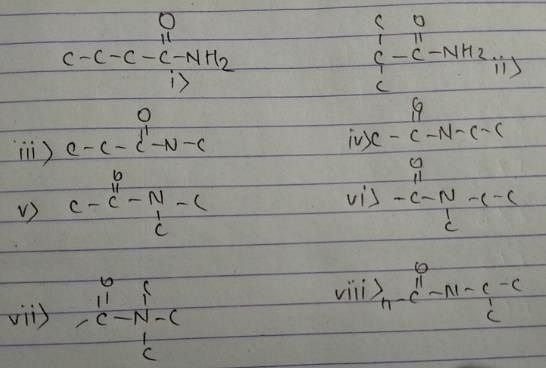 O
C-C-C-C-NH2
i)
C O
C-C-NH2 ii)
C
O
iii) C-C-C-N-C
O
iv) C-C-N-C-C
O
v) C-C-N-C
C
O
vi) -C-N-C-C
C
O C
vii) -C-N-C
C
O
viii) -C-N-C-C
C